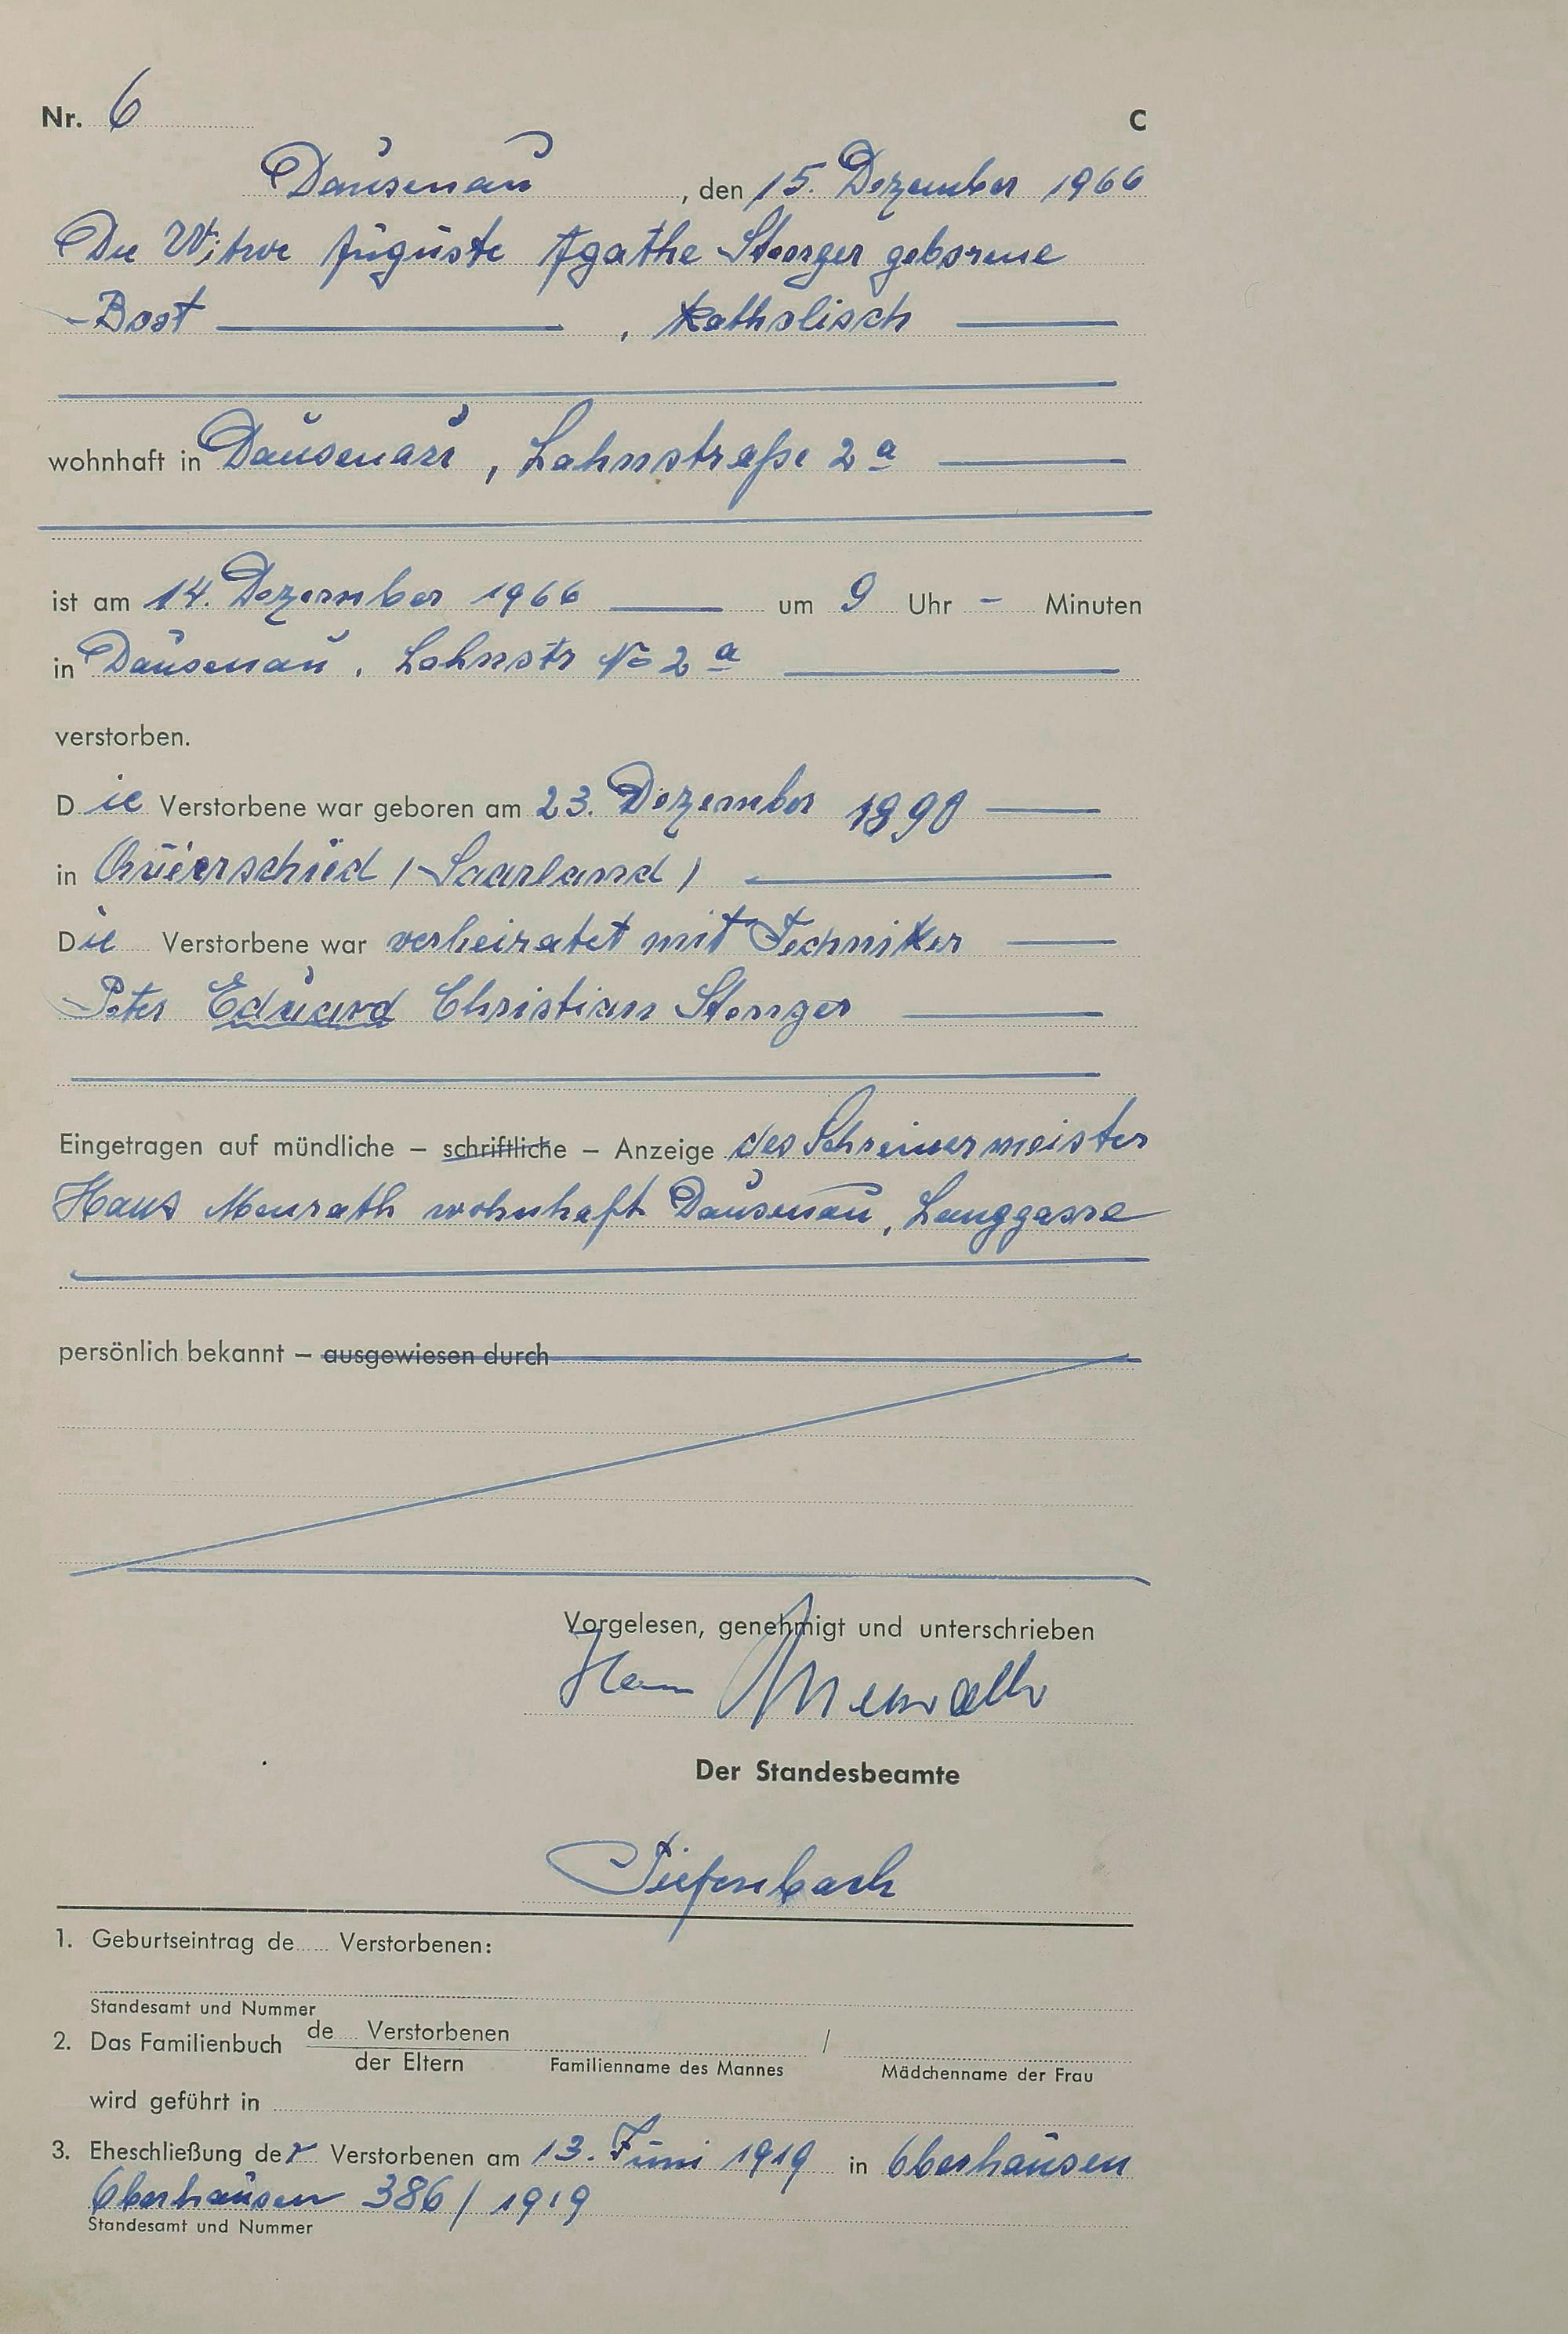 Nr. 6 C
Dausenau, den 15. Dezember 1966
Die Witwe Auguste Agathe Stenger geborene
Bost, katholisch
wohnhaft in Dausenau, Lahnstraße 2a
ist am 14. Dezember 1966 um 9 Uhr – Minuten
in Dausenau, Lahnstr No 2a
verstorben.
Die Verstorbene war geboren am 23. Dezember 1890
in Quierschied (Saarland)
Die Verstorbene war verheiratet mit Techniker
Peter Eduard Christian Stenger
Eingetragen auf mündliche – schriftliche – Anzeige des Schreinermeister
Hans Menrath wohnhaft Dausenau, Langgasse
persönlich bekannt – ausgewiesen durch
Vorgelesen, genehmigt und unterschrieben
Hans Menrath
Der Standesbeamte
Tiefenbach
1. Geburtseintrag de Verstorbenen:
Standesamt und Nummer
2. Das Familienbuch de Verstorbenen /
der Eltern Familienname des Mannes Mädchenname der Frau
wird geführt in
3. Eheschließung der Verstorbenen am 13. Juni 1919 in Oberhausen
Oberhausen 386/1919
Standesamt und Nummer